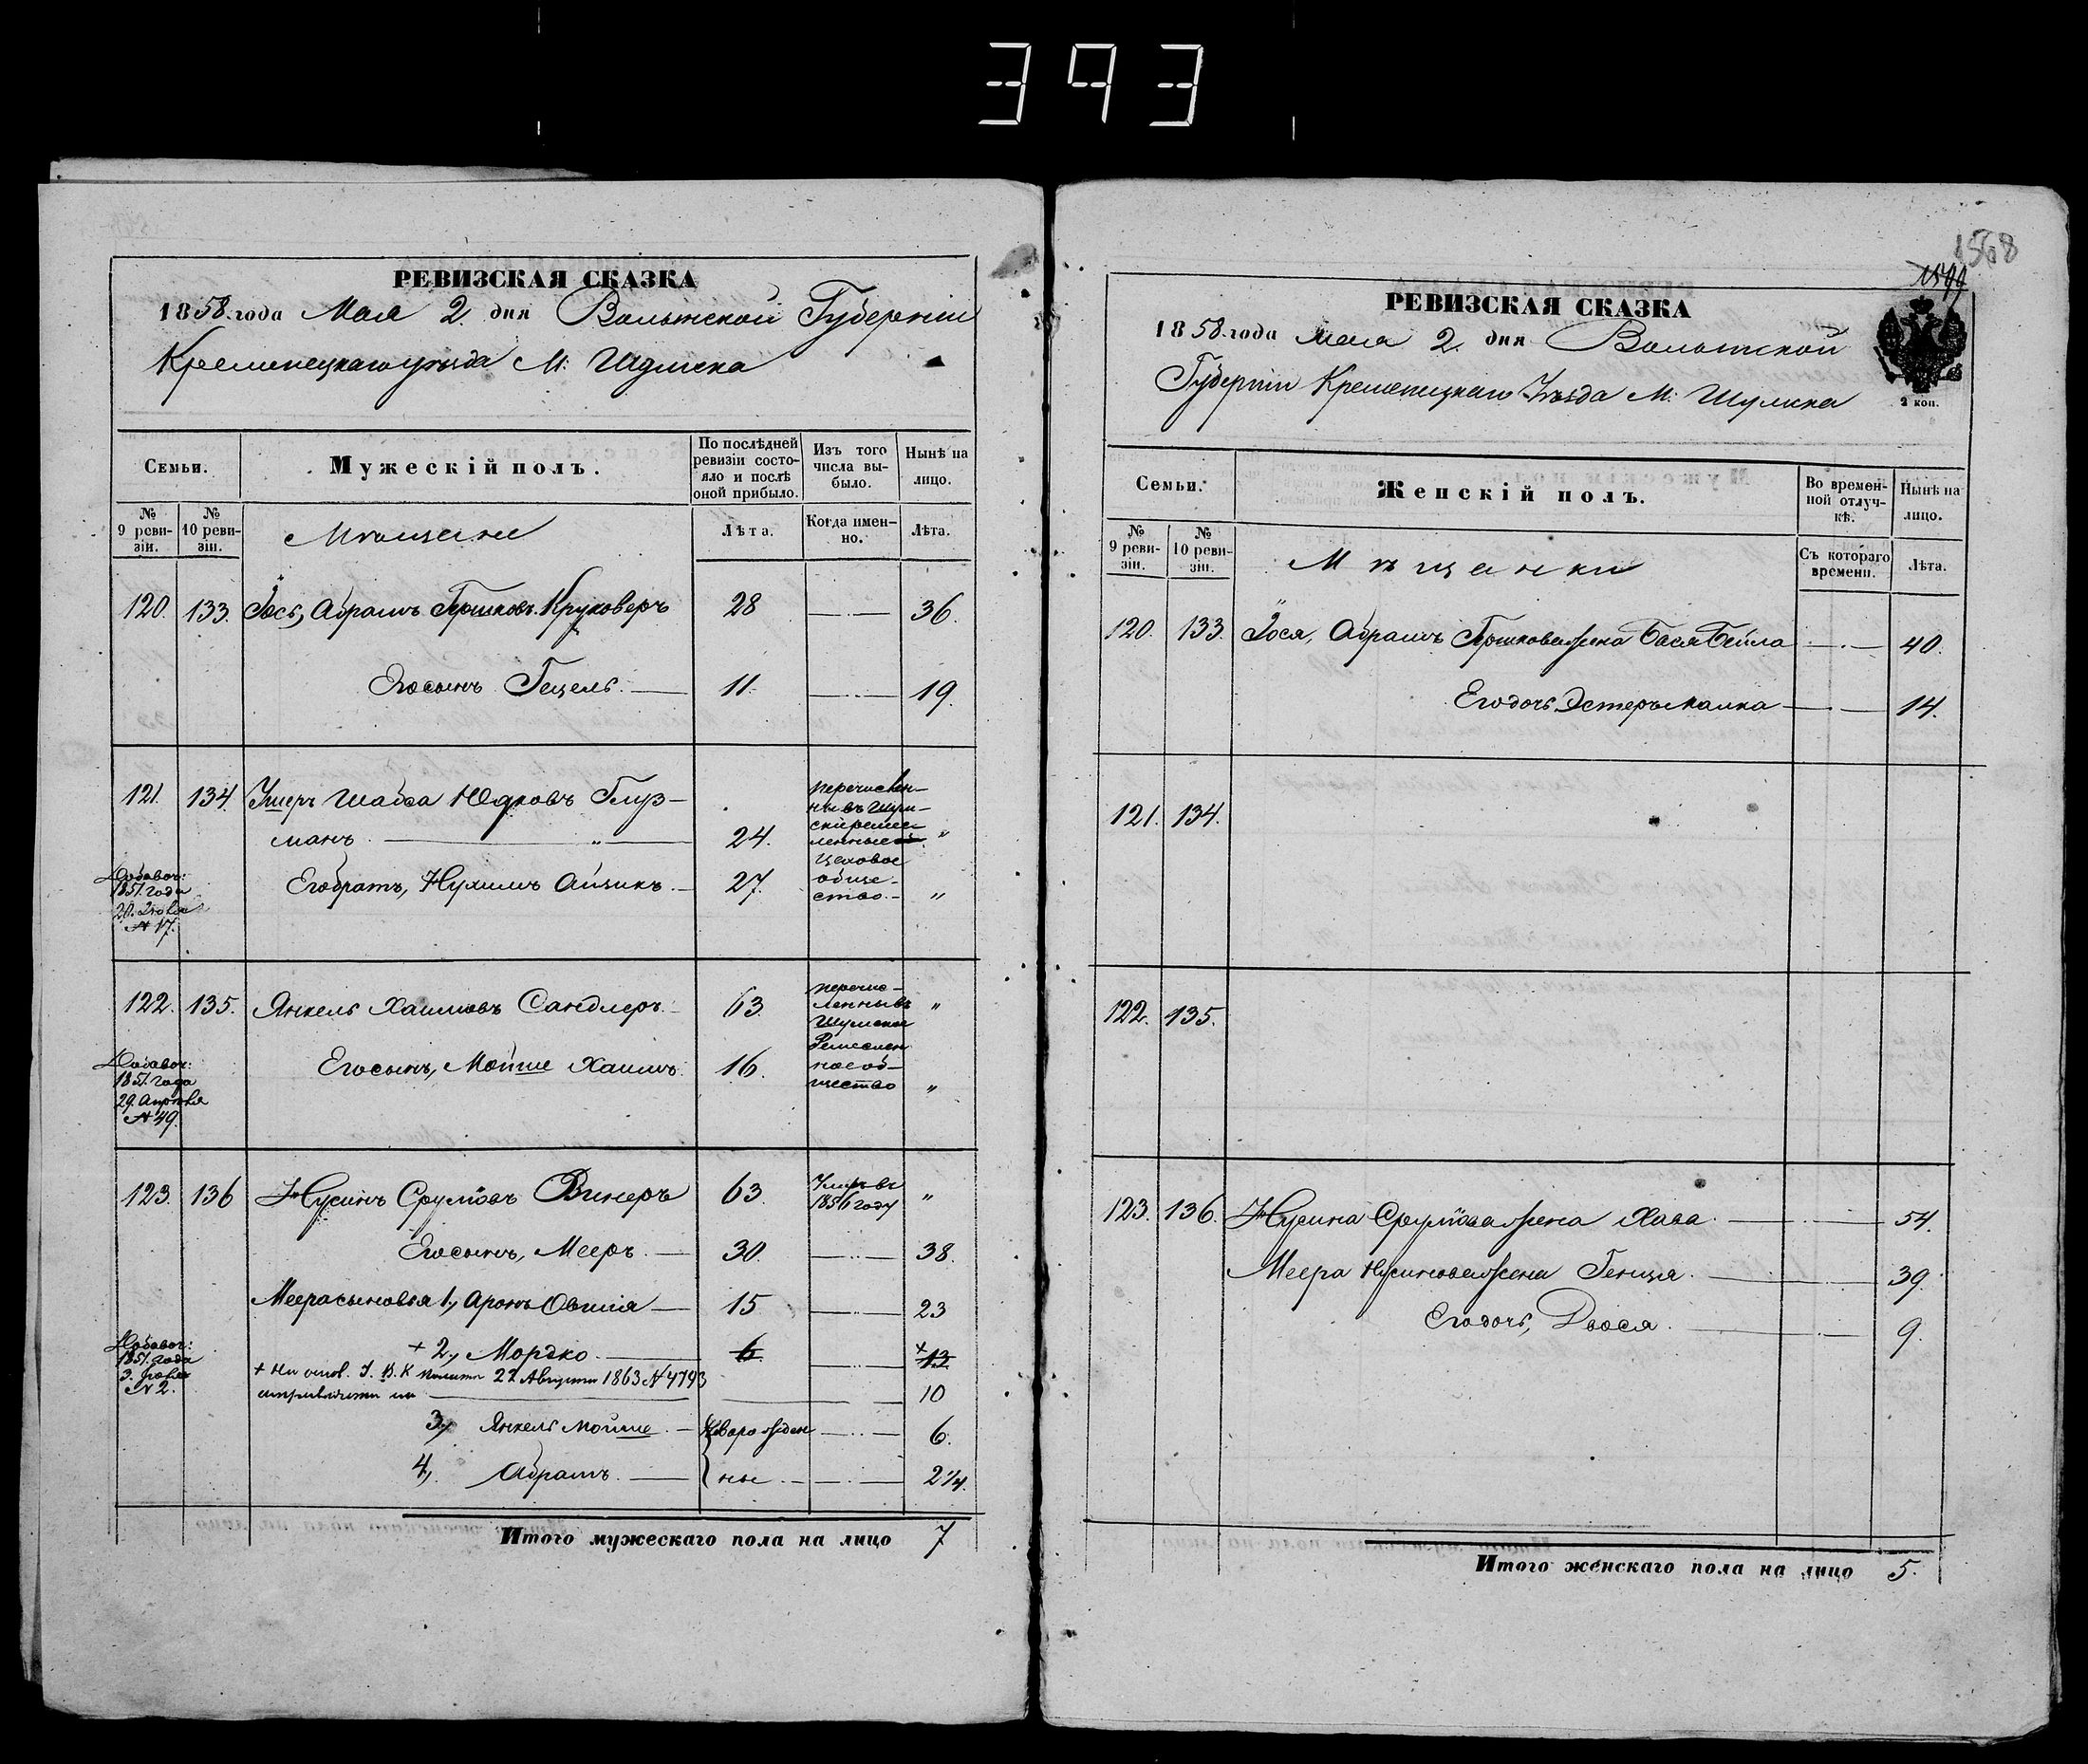 393
РЕВИЗСКАЯ СКАЗКА
1858 года Мая 2 дня Волынской Губерніи
Кременецкаго уѣзда М: Шумска
Семьи.
Мужескій полъ.
По послѣдней ревизіи состояло и послѣ оной прибыло.
Изъ того числа выбыло.
Нынѣ на лицо.
№ 9 ревизіи.
№ 10 ревизіи.
Мѣщане
Лѣта.
Когда именно.
Лѣта.
120. 133. Іось, Абрамъ Гершковъ Круковеръ 28 36.
Его сынъ Гецель. 11. 19.
121. 134 Ушеръ Шабса Юдковъ Глуз-
манъ 24. "
перечислен-
ны въ Шум-
ское
цеховое
обще-
ство.
Добавоч:
1851. года
20.
№ 17.
Его братъ, Нухимъ Айзикъ. 27. "
122. 135. Янкель Хаимовъ Сандлеръ. 63. "
перечис-
лены въ
Шумское
Ремеслен
ное об-
щество
Добавоч:
1851. года
29. Апрѣля
№ 49.
Его сынъ, Мойше Хаимъ. 16. "
123. 136 Нусинъ Срулiовъ Винеръ 63 Умръ въ 1856 году "
Его сынъ, Мееръ. 30. 38.
Меера сыновья 1., Аронъ Овшiя 15 23
Добавоч:
1851. года
3.
№ 2.
+ 2., Мордко. 6. + 13.
+ На основ. У. В. К Палаты 22 Августа 1863 № 4793
10
3., Янкель Мойше. Новорожден 6.
4., Абрамъ. ные 2 1/4.
Итого мужескаго пола на лицо 7
1568
1599
РЕВИЗСКАЯ СКАЗКА
1858 года мая 2. дня Волынской
Губерніи Кременецкаго Уѣзда М: Шумска
2 коп.
Семьи.
Женскій полъ.
Во временной отлучкѣ.
Нынѣ на лицо.
№ 9 ревизіи.
№ 10 ревизіи.
Мѣщанки
Съ котораго времени.
Лѣта.
120. 133. Іося, Абрамъ Гершкова жена Бася Бейла 40.
Его дочь Эстеръ Малка 14.
121. 134.
122. 135.
123. 136. Нусина Срулiова жена Хава. 54.
Меера Нусинова жена Генця. 39.
Его дочь, Двося. 9.
Итого женскаго пола на лицо 5.